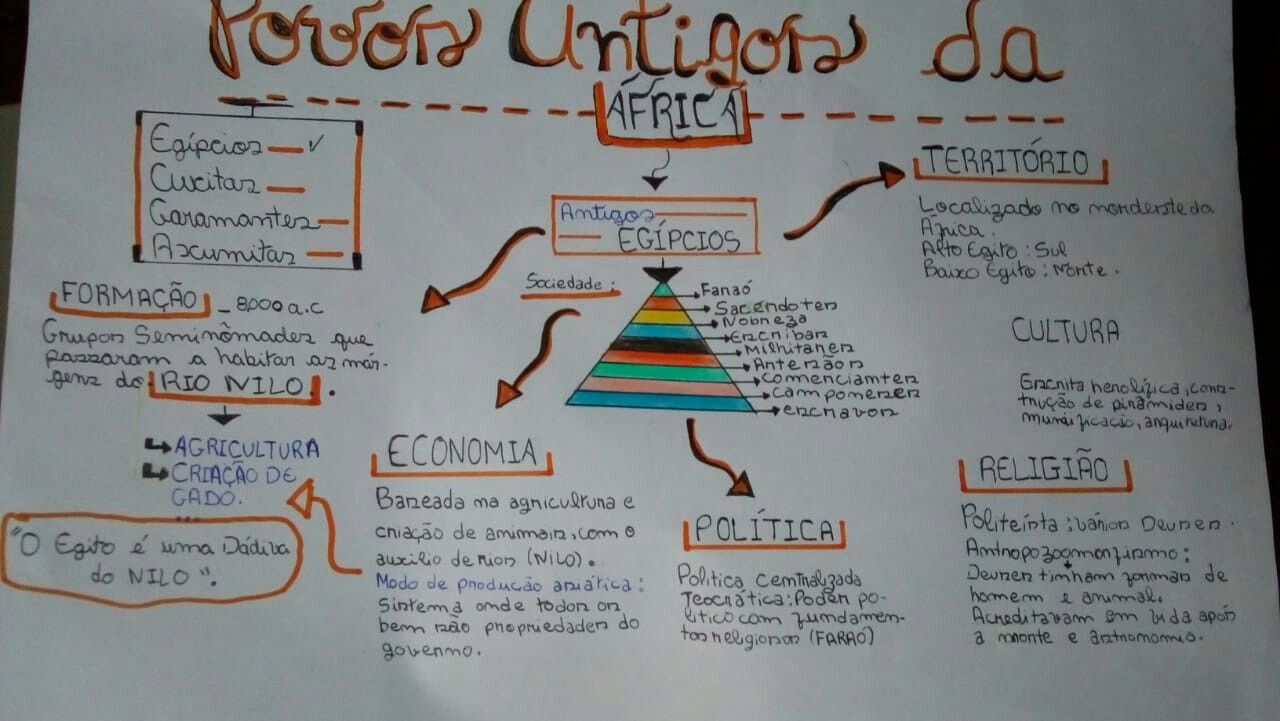 Povos Antigos da
ÁFRICA
Egípcios ✓
Cucitas
Garamantes
Axcumitas
Antigos
EGÍPCIOS
TERRITÓRIO
Localizado no nordeste da
África.
Alto Egito : Sul
Baixo Egito : Norte.
FORMAÇÃO _ 8000 a.c
Grupos Seminômades que
passaram a habitar as már-
gens do RIO NILO.
AGRICULTURA
CRIAÇÃO DE
GADO.
"O Egito é uma Dádiva
do NILO".
Sociedade :
Faraó
Sacerdotes
Nobreza
Escribas
Milhitares
Artesãos
comerciantes
camponeses
escravos
CULTURA
Escrita herolífica, cons-
trução de pirâmides,
mumificação, arquitetura.
ECONOMIA
Baseada na agricultura e
criação de animais, com o
auxilio de rios (NILO).
Modo de produção asiática :
Sistema onde todos os
bem são propriedades do
governo.
POLÍTICA
Politica centralizada
Teocrática : Poder po-
lítico com fundamen-
tos religiosos (FARAÓ)
RELIGIÃO
Politeísta : vários Deuses.
Antropozoomorfismo :
Deuses tinham formas de
homem e animal.
Acreditavam em vida após
a morte e astronomia.